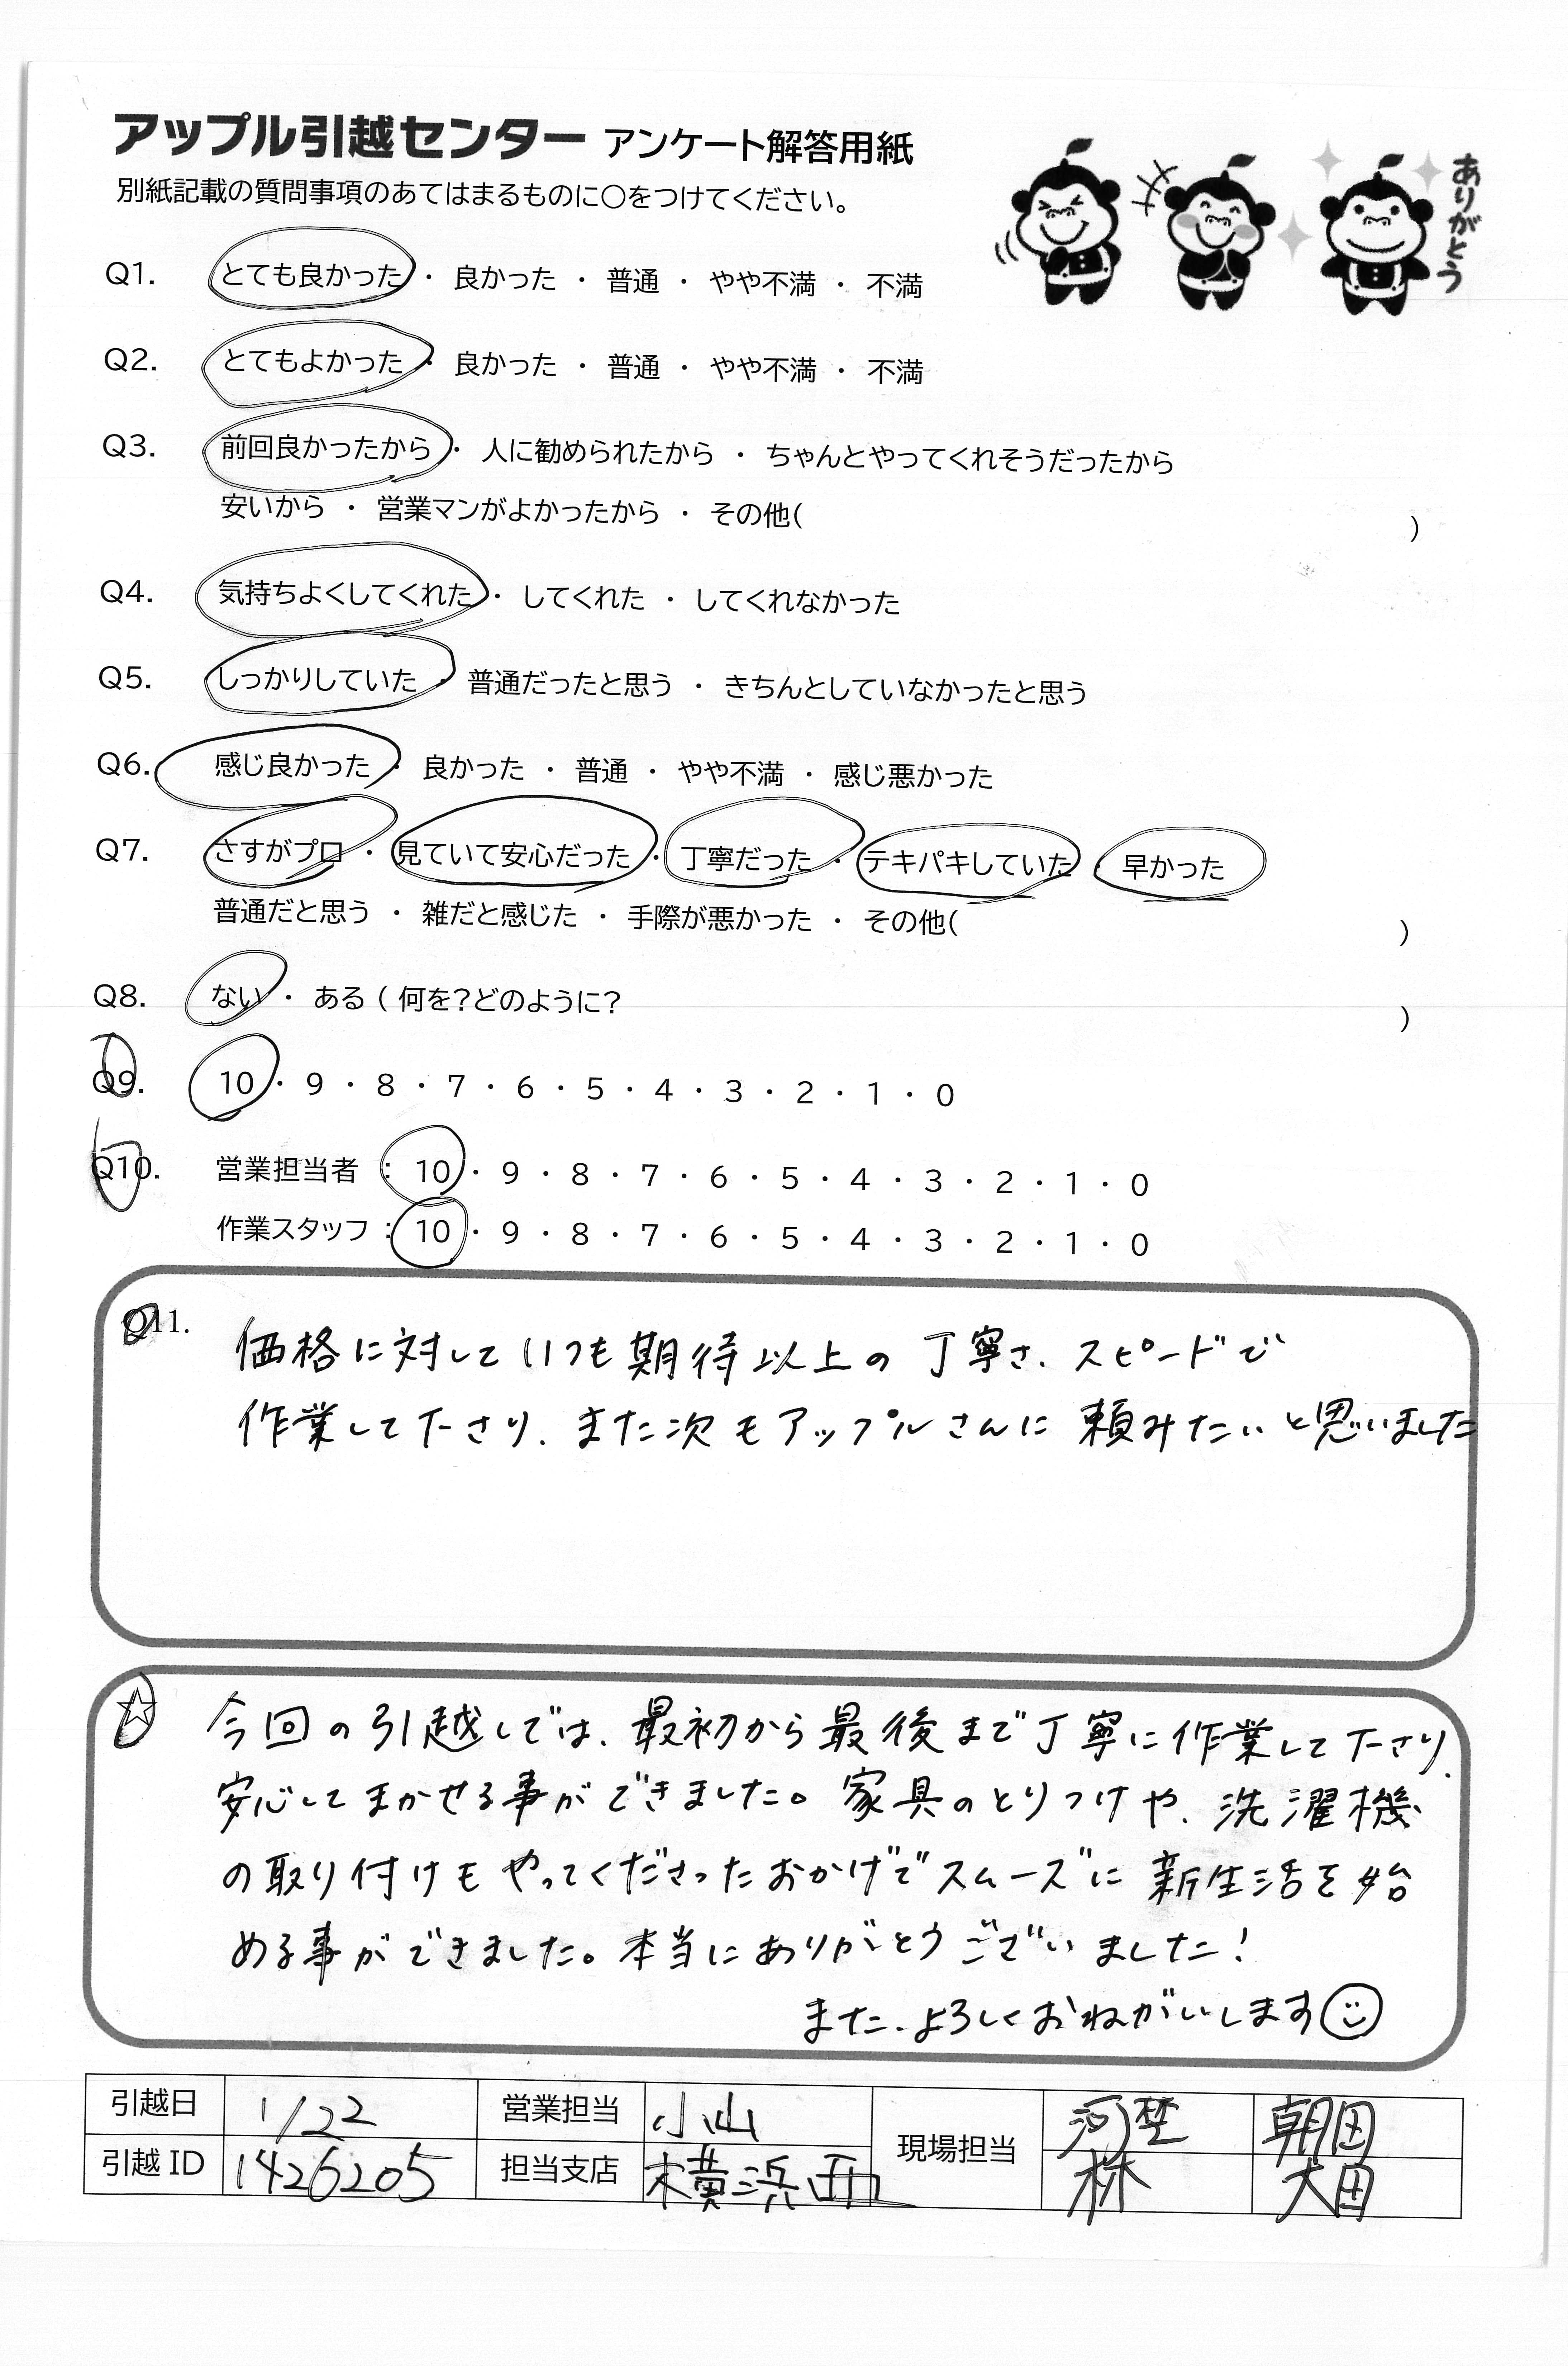 アップル引越センター アンケート解答用紙
ありがとう
別紙記載の質問事項のあてはまるものに○をつけてください。
Q1. とても良かった ・ 良かった ・ 普通 ・ やや不満 ・ 不満
Q2. とてもよかった ・ 良かった ・ 普通 ・ やや不満 ・ 不満
Q3. 前回良かったから ・ 人に勧められたから ・ ちゃんとやってくれそうだったから
安いから ・ 営業マンがよかったから ・ その他( )
Q4. 気持ちよくしてくれた ・ してくれた ・ してくれなかった
Q5. しっかりしていた ・ 普通だったと思う ・ きちんとしていなかったと思う
Q6. 感じ良かった ・ 良かった ・ 普通 ・ やや不満 ・ 感じ悪かった
Q7. さすがプロ ・ 見ていて安心だった ・ 丁寧だった ・ テキパキしていた ・ 早かった
普通だと思う ・ 雑だと感じた ・ 手際が悪かった ・ その他( )
Q8. ない ・ ある ( 何を?どのように? )
Q9. 10 ・ 9 ・ 8 ・ 7 ・ 6 ・ 5 ・ 4 ・ 3 ・ 2 ・ 1 ・ 0
Q10. 営業担当者 : 10 ・ 9 ・ 8 ・ 7 ・ 6 ・ 5 ・ 4 ・ 3 ・ 2 ・ 1 ・ 0
作業スタッフ : 10 ・ 9 ・ 8 ・ 7 ・ 6 ・ 5 ・ 4 ・ 3 ・ 2 ・ 1 ・ 0
Q11. 価格に対していつも期待以上の丁寧さ、スピードで
作業して下さり、また次もアップルさんに頼みたいと思いました
☆ 今回の引越しでは、最初から最後まで丁寧に作業して下さり、
安心してまかせる事ができました。家具のとりつけや、洗濯機
の取り付けもやってくださったおかげでスムーズに新生活を始
める事ができました。本当にありがとうございました!
また、よろしくおねがいします
引越日 1/22 営業担当 小山 現場担当 河埜 朝田
引越ID 1426205 担当支店 横浜西 林 大田